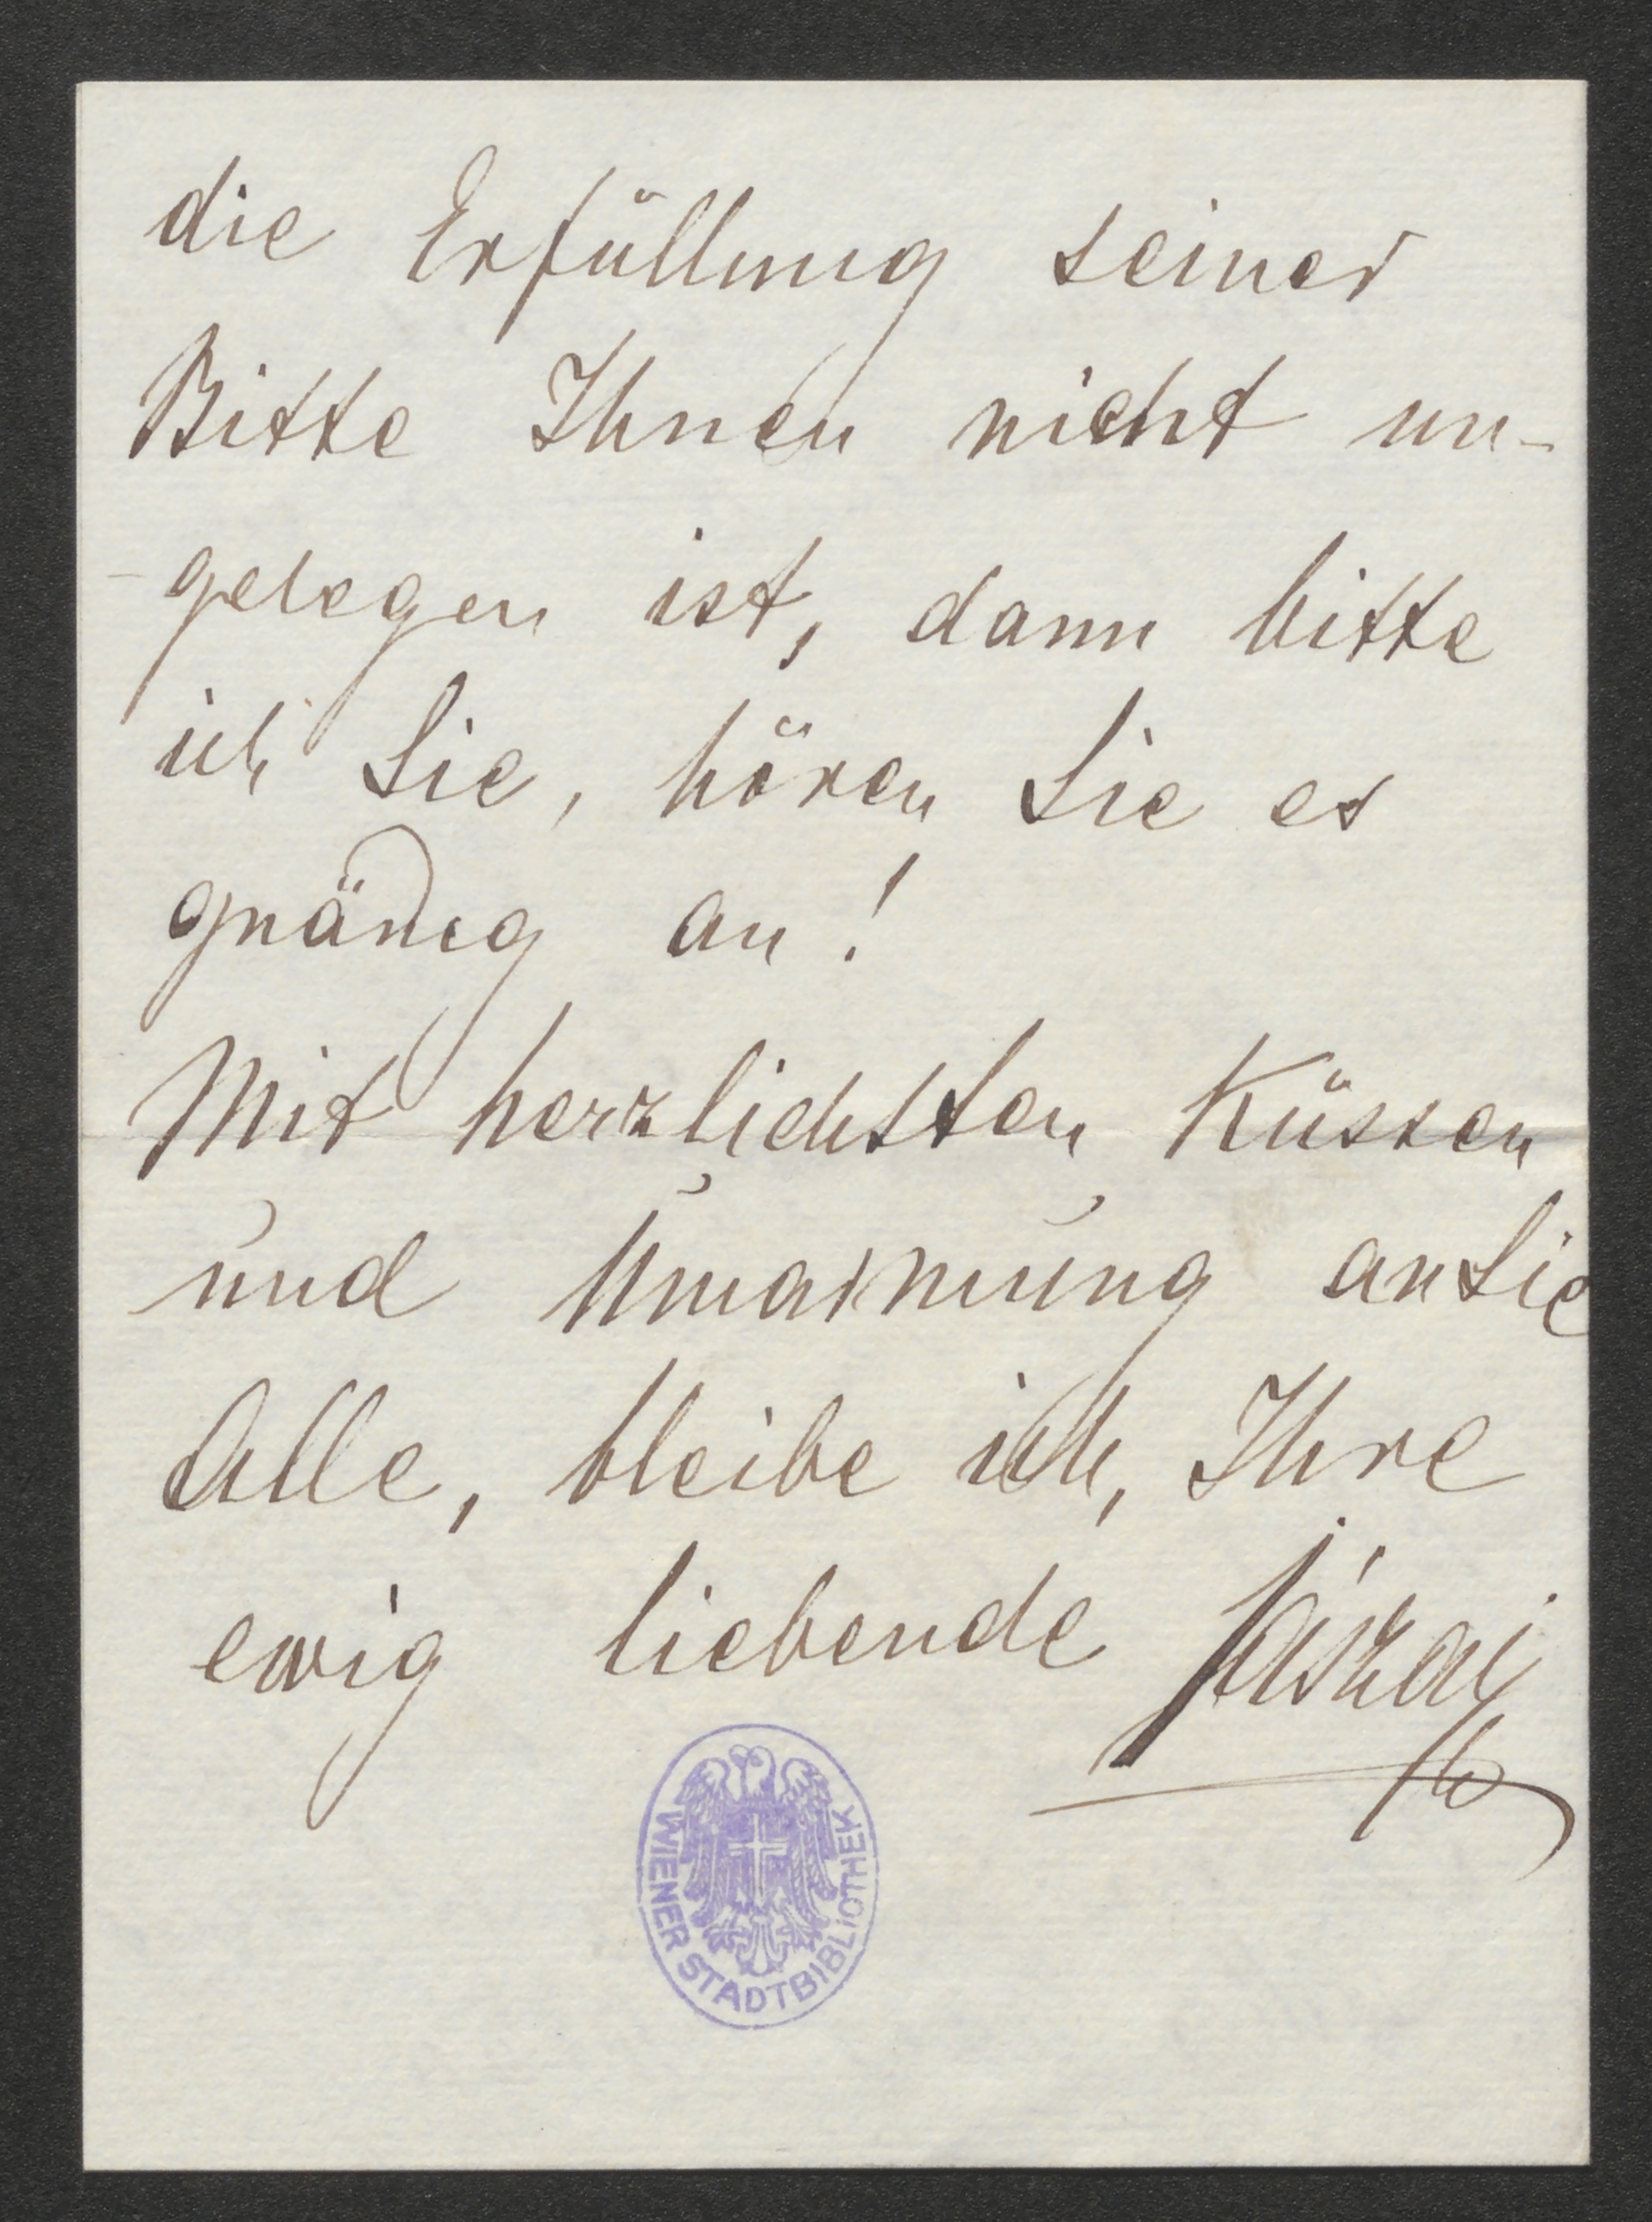 die Erfüllung seiner
Bitte Ihnen nicht un-
-gelegen ist, dann bitte
ich Sie, hören Sie es
gnädig an!
Mit herzlichsten Küssen
und Umarmung an Sie
Alle, bleibe ich, Ihre
ewig liebende Jászai
WIENER STADTBIBLIOTHEK